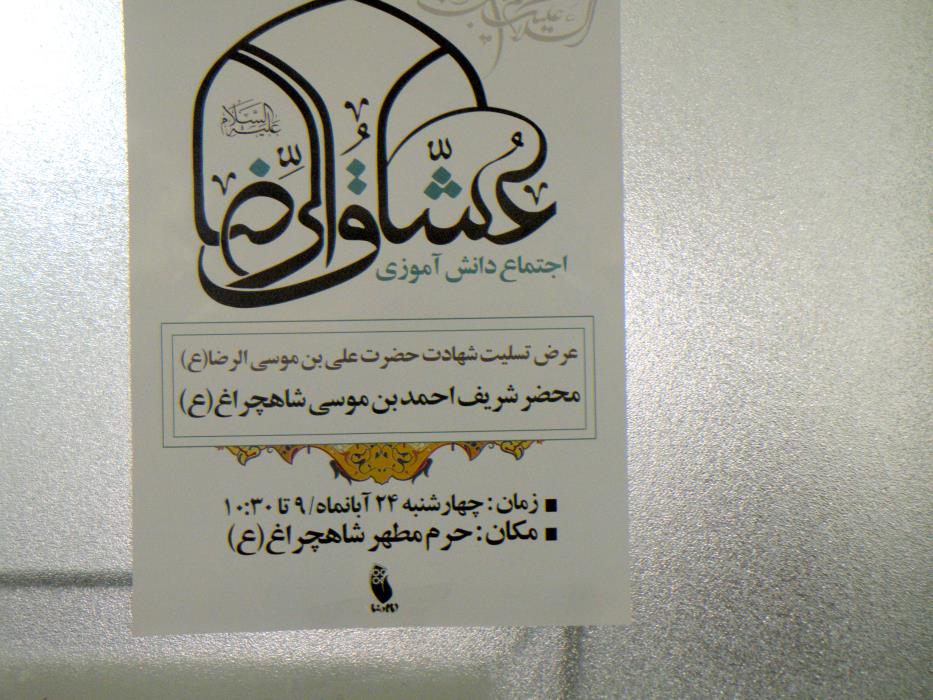 عشاق الرضا
علیه السلام
اجتماع دانش آموزی
عرض تسلیت شهادت حضرت علی بن موسی الرضا(ع)
محضر شریف احمد بن موسی شاهچراغ(ع)
زمان : چهارشنبه ۲۴ آبانماه/ ۹ تا ۱۰:۳۰
مکان : حرم مطهر شاهچراغ(ع)